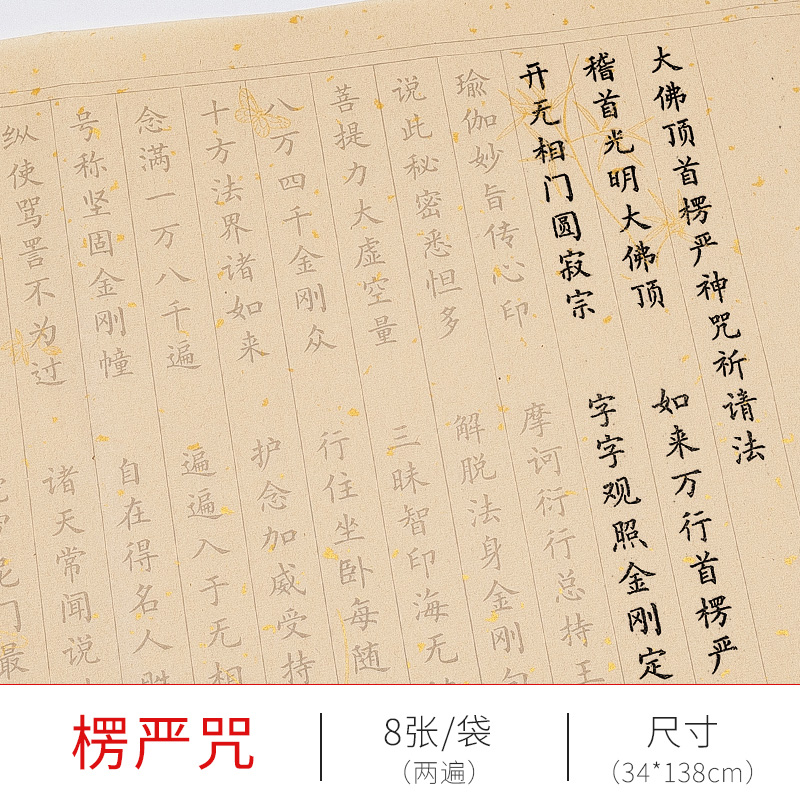 大佛顶首楞严神咒祈请法
稽首光明大佛顶 如来万行首楞严
开无相门圆寂宗 字字观照金刚定
瑜伽妙旨传心印 摩诃衍行总持王
说此秘密悉怛多 解脱法身金刚句
菩提力大虚空量 三昧智印海无
八万四千金刚众 行住坐卧每随
十方法界诸如来 护念加威受持
念满一万八千遍 遍遍入于无相
号称坚固金刚幢 自在得名人胜
纵使骂詈不为过 诸天常闻说
门最
楞严咒
8张/袋
（两遍）
尺寸
（34*138cm）